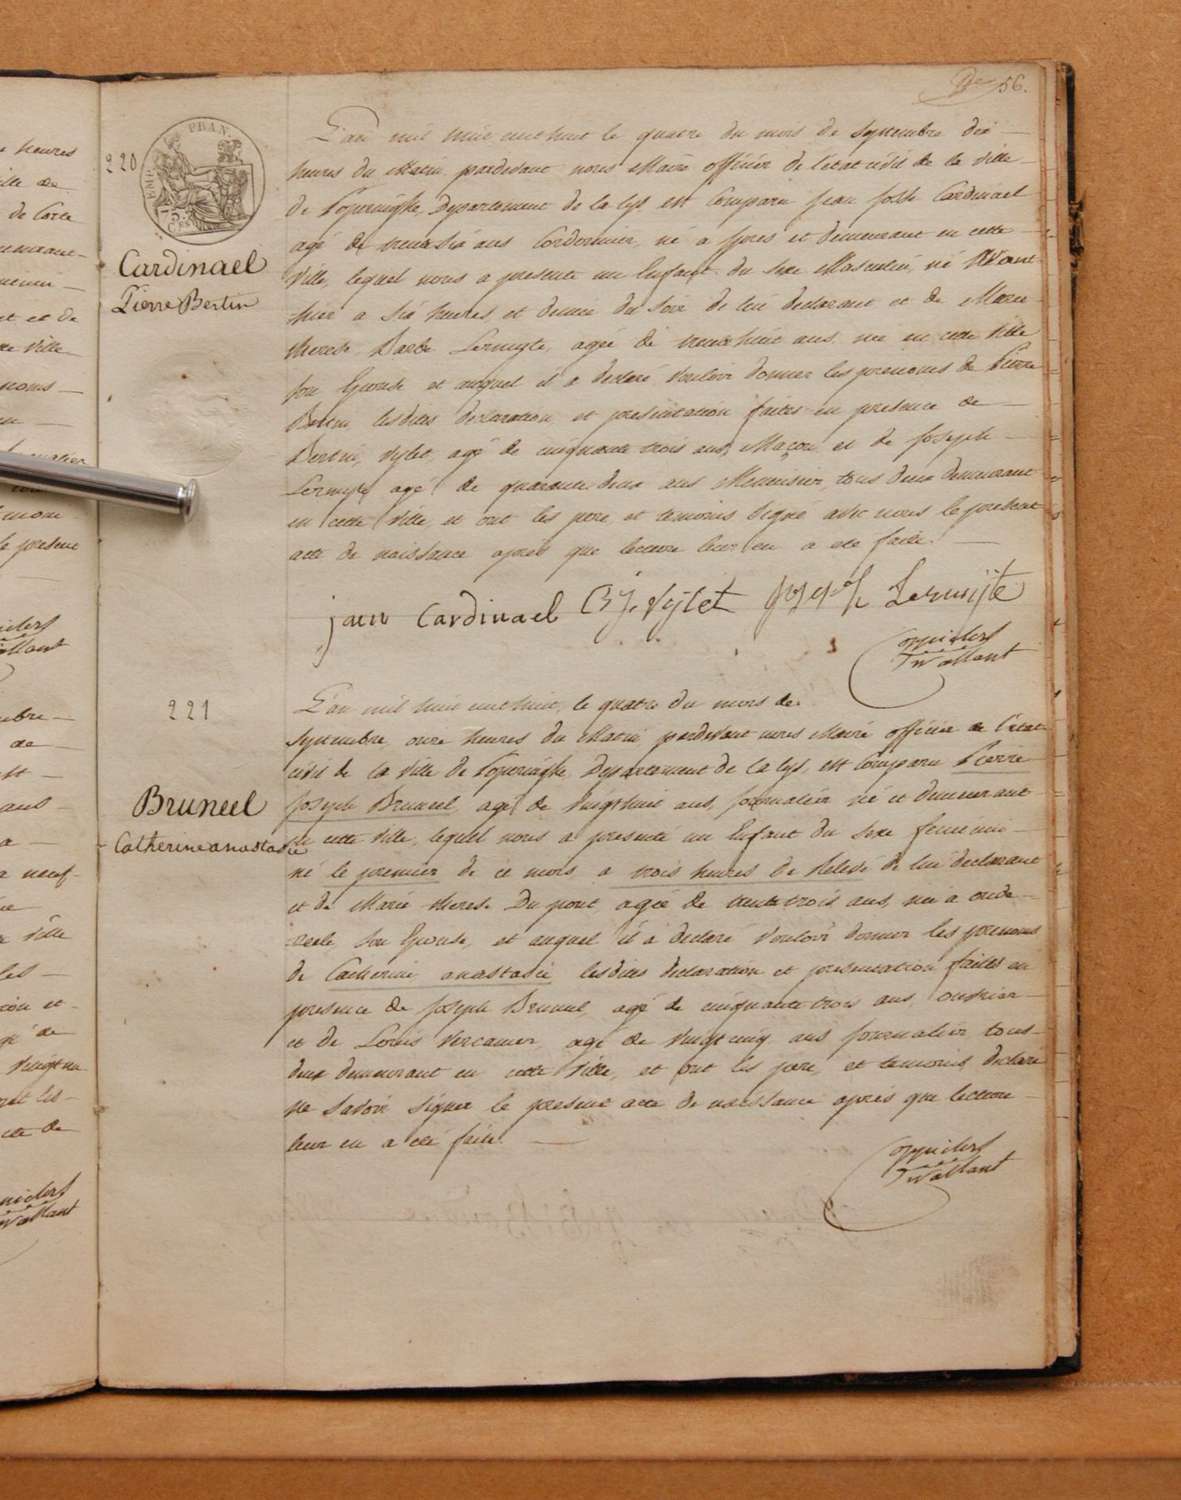 56.
220
EMP. FRAN.
75
CEN
Cardinael
Pierre Bertin
L'an mil huit cent huit le quatre du mois de Septembre dix
heures du Matin pardevant nous Maire officier de l'état civil de la Ville
de Poperinghe, Departement de la Lys, est Comparu Jean Joseph Cardinael
agé de trente six ans Cordonnier, né a Ypres et demeurant en cette
Ville, lequel nous a presenté un Enfant du sexe Masculin, né Avant
hier a six heures et demie du soir de lui declarant et de Marie
therese Barbe Lermyte, agée de trente huit ans née en cette Ville
son Epouse et auquel il a declaré Vouloir donner les prenoms de Pierre
Bertin lesdites declaration et presentation faites en presence de
Bertin Vylet agé de cinquante trois ans, Macon et de Joseph
Lermyte agé de quarante deux ans Menuisier, tous deux demeurant
en cette Ville et ont les pere et temoins Signé avec nous le present
acte de naissance aprés que lecture leur en a été faite.
jaen Cardinael B J. Vylet Joseph Lermijte
221
Bruneel
Catherine anastasie
L'an mil huit cent huit, le quatre du mois de
Septembre, onze heures du Matin pardevant nous Maire officier de l'état
civil de la Ville de Poperinghe, Departement de la Lys, est Comparu Pierre
Joseph Bruneel, agé de Vingt huit ans, journalier né et demeurant
en cette Ville, lequel nous a presenté un Enfant du sexe feminin
né le premier de ce mois a trois heures de Relevé de lui declarant
et de Marie therese Du pont, agée de trente trois ans, née a
son Epouse, et auquel il a declaré Vouloir donner les prenoms
de Catherine anastasie lesdites declaration et presentation faites en
presence de Joseph Bruneel, agé de cinquante trois ans,
et de Louis Vercamer, agé de Vingt cinq ans journalier, tous
deux demeurant en cette Ville, et ont les pere, et temoins, declaré
ne Savoir Signer le present acte de naissance aprés que lecture
leur en a été faite.